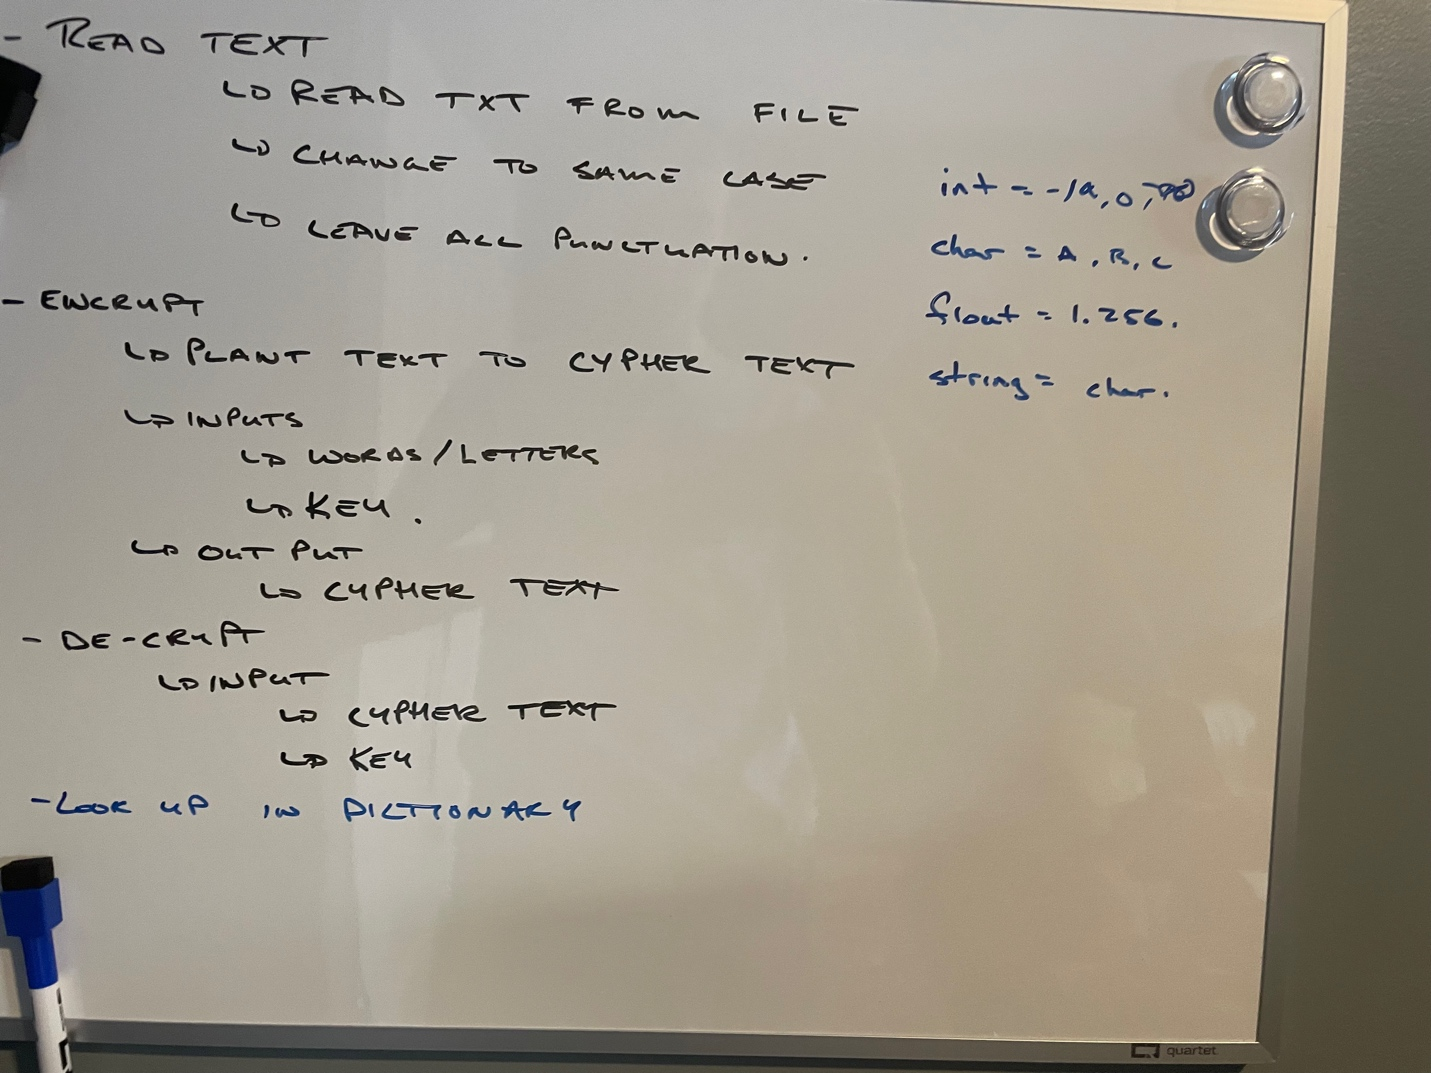 - READ TEXT
↳ READ TXT FROM FILE
↳ CHANGE TO SAME CASE
↳ LEAVE ALL PUNCTUATION.
- ENCRYPT
↳ PLANT TEXT TO CYPHER TEXT
↳ INPUTS
↳ WORDS/LETTERS
↳ KEY.
↳ OUTPUT
↳ CYPHER TEXT
- DE-CRYPT
↳ INPUT
↳ CYPHER TEXT
↳ KEY
- LOOK UP IN DICTIONARY
int = 0,
char = A, B, C
float = 1.256.
string = char.
quartet